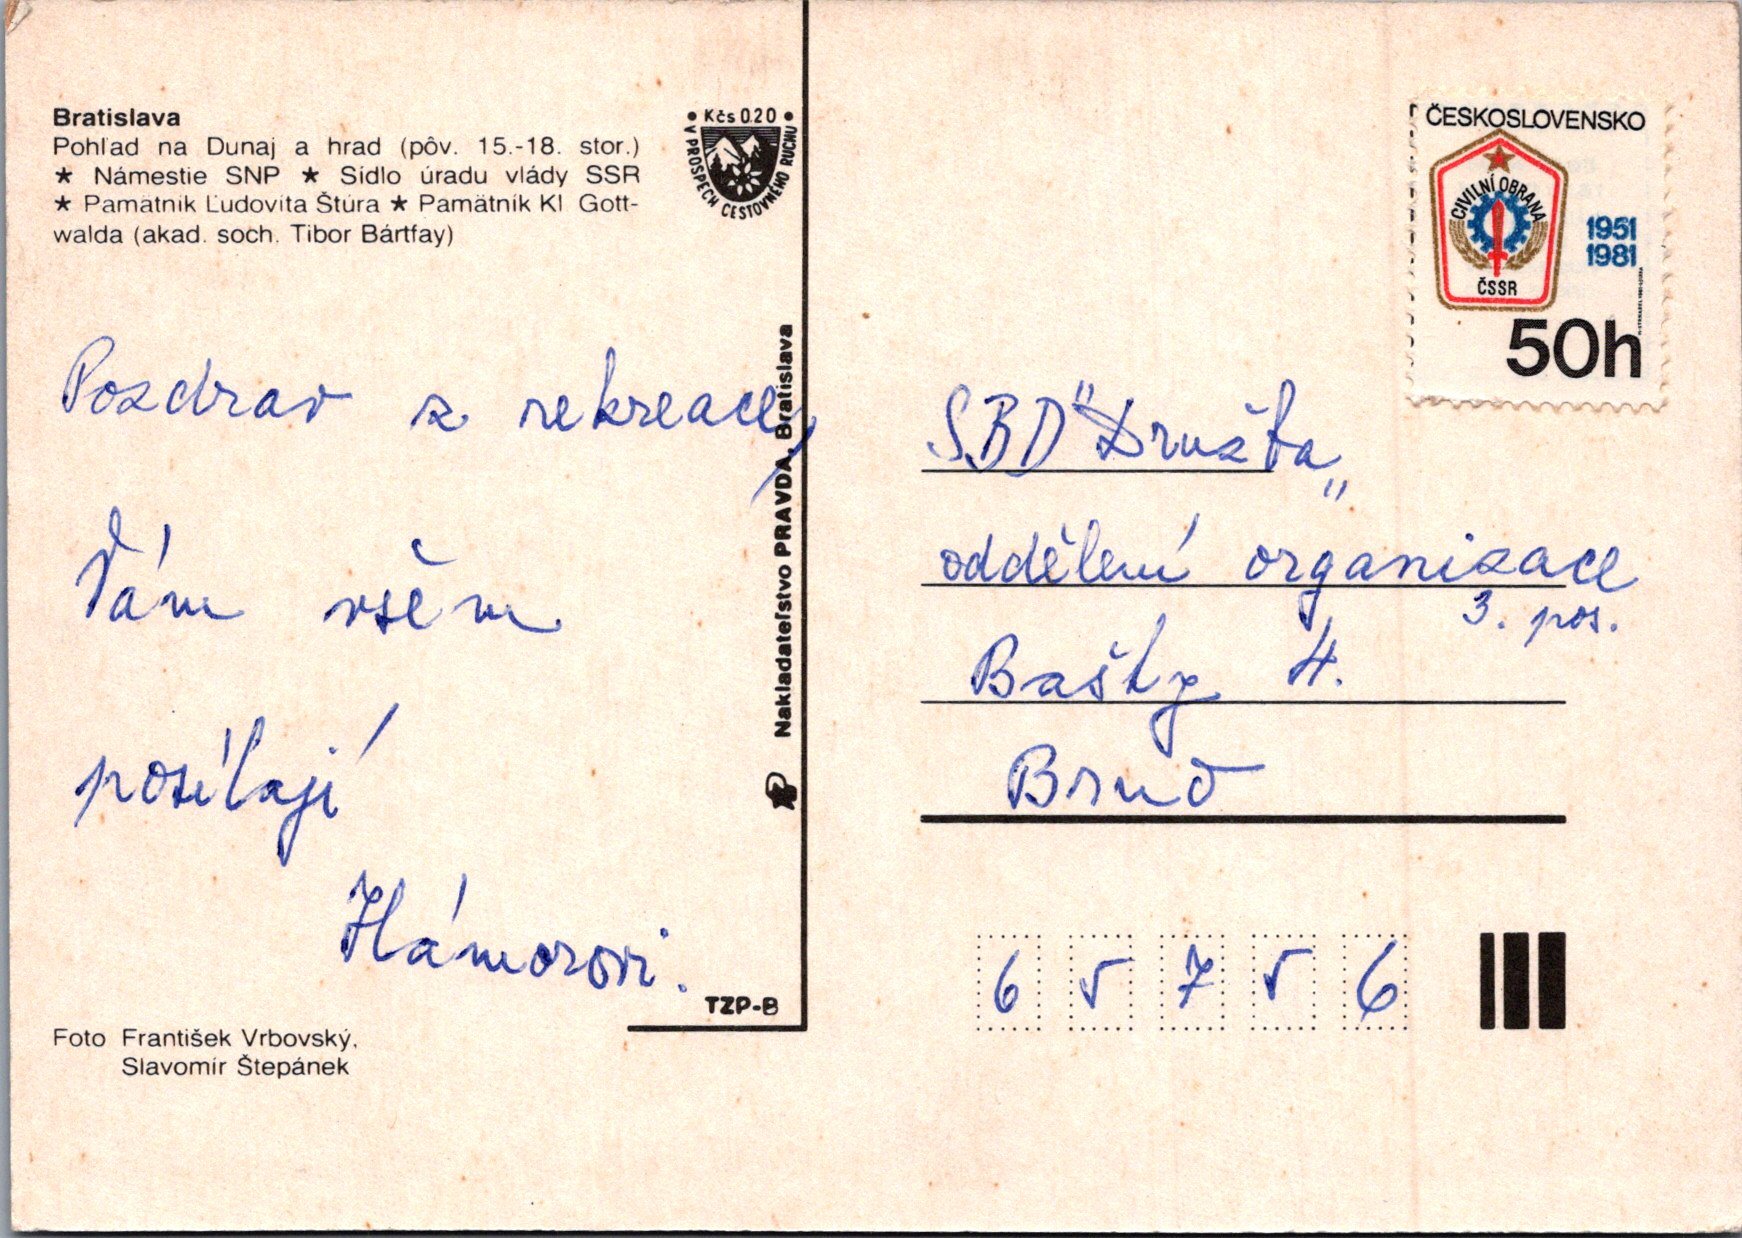 Bratislava
Pohľad na Dunaj a hrad (pôv. 15.-18. stor.)
★ Námestie SNP ★ Sídlo úradu vlády SSR
★ Pamätník Ľudovíta Štúra ★ Pamätník Kl Gott-
walda (akad. soch. Tibor Bártfay)
• Kčs 0.20 •
V PROSPECH CESTOVNÉHO RUCHU
Pozdrav z rekreace,
Vám všem
posílají
Hámorovi.
TZP-B
Foto František Vrbovský,
Slavomír Štepánek
Nakladateľstvo PRAVDA, Bratislava
ČESKOSLOVENSKO
CIVILNÍ OBRANA
ČSSR
1951
1981
50h
SBD "Družba"
oddělení organizace
3. pos.
Bašty 4.
Brno
6 5 7 5 6